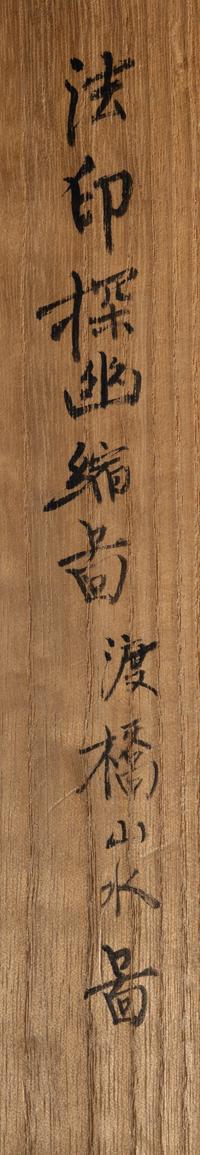 法印探幽縮啚渡橋山水啚